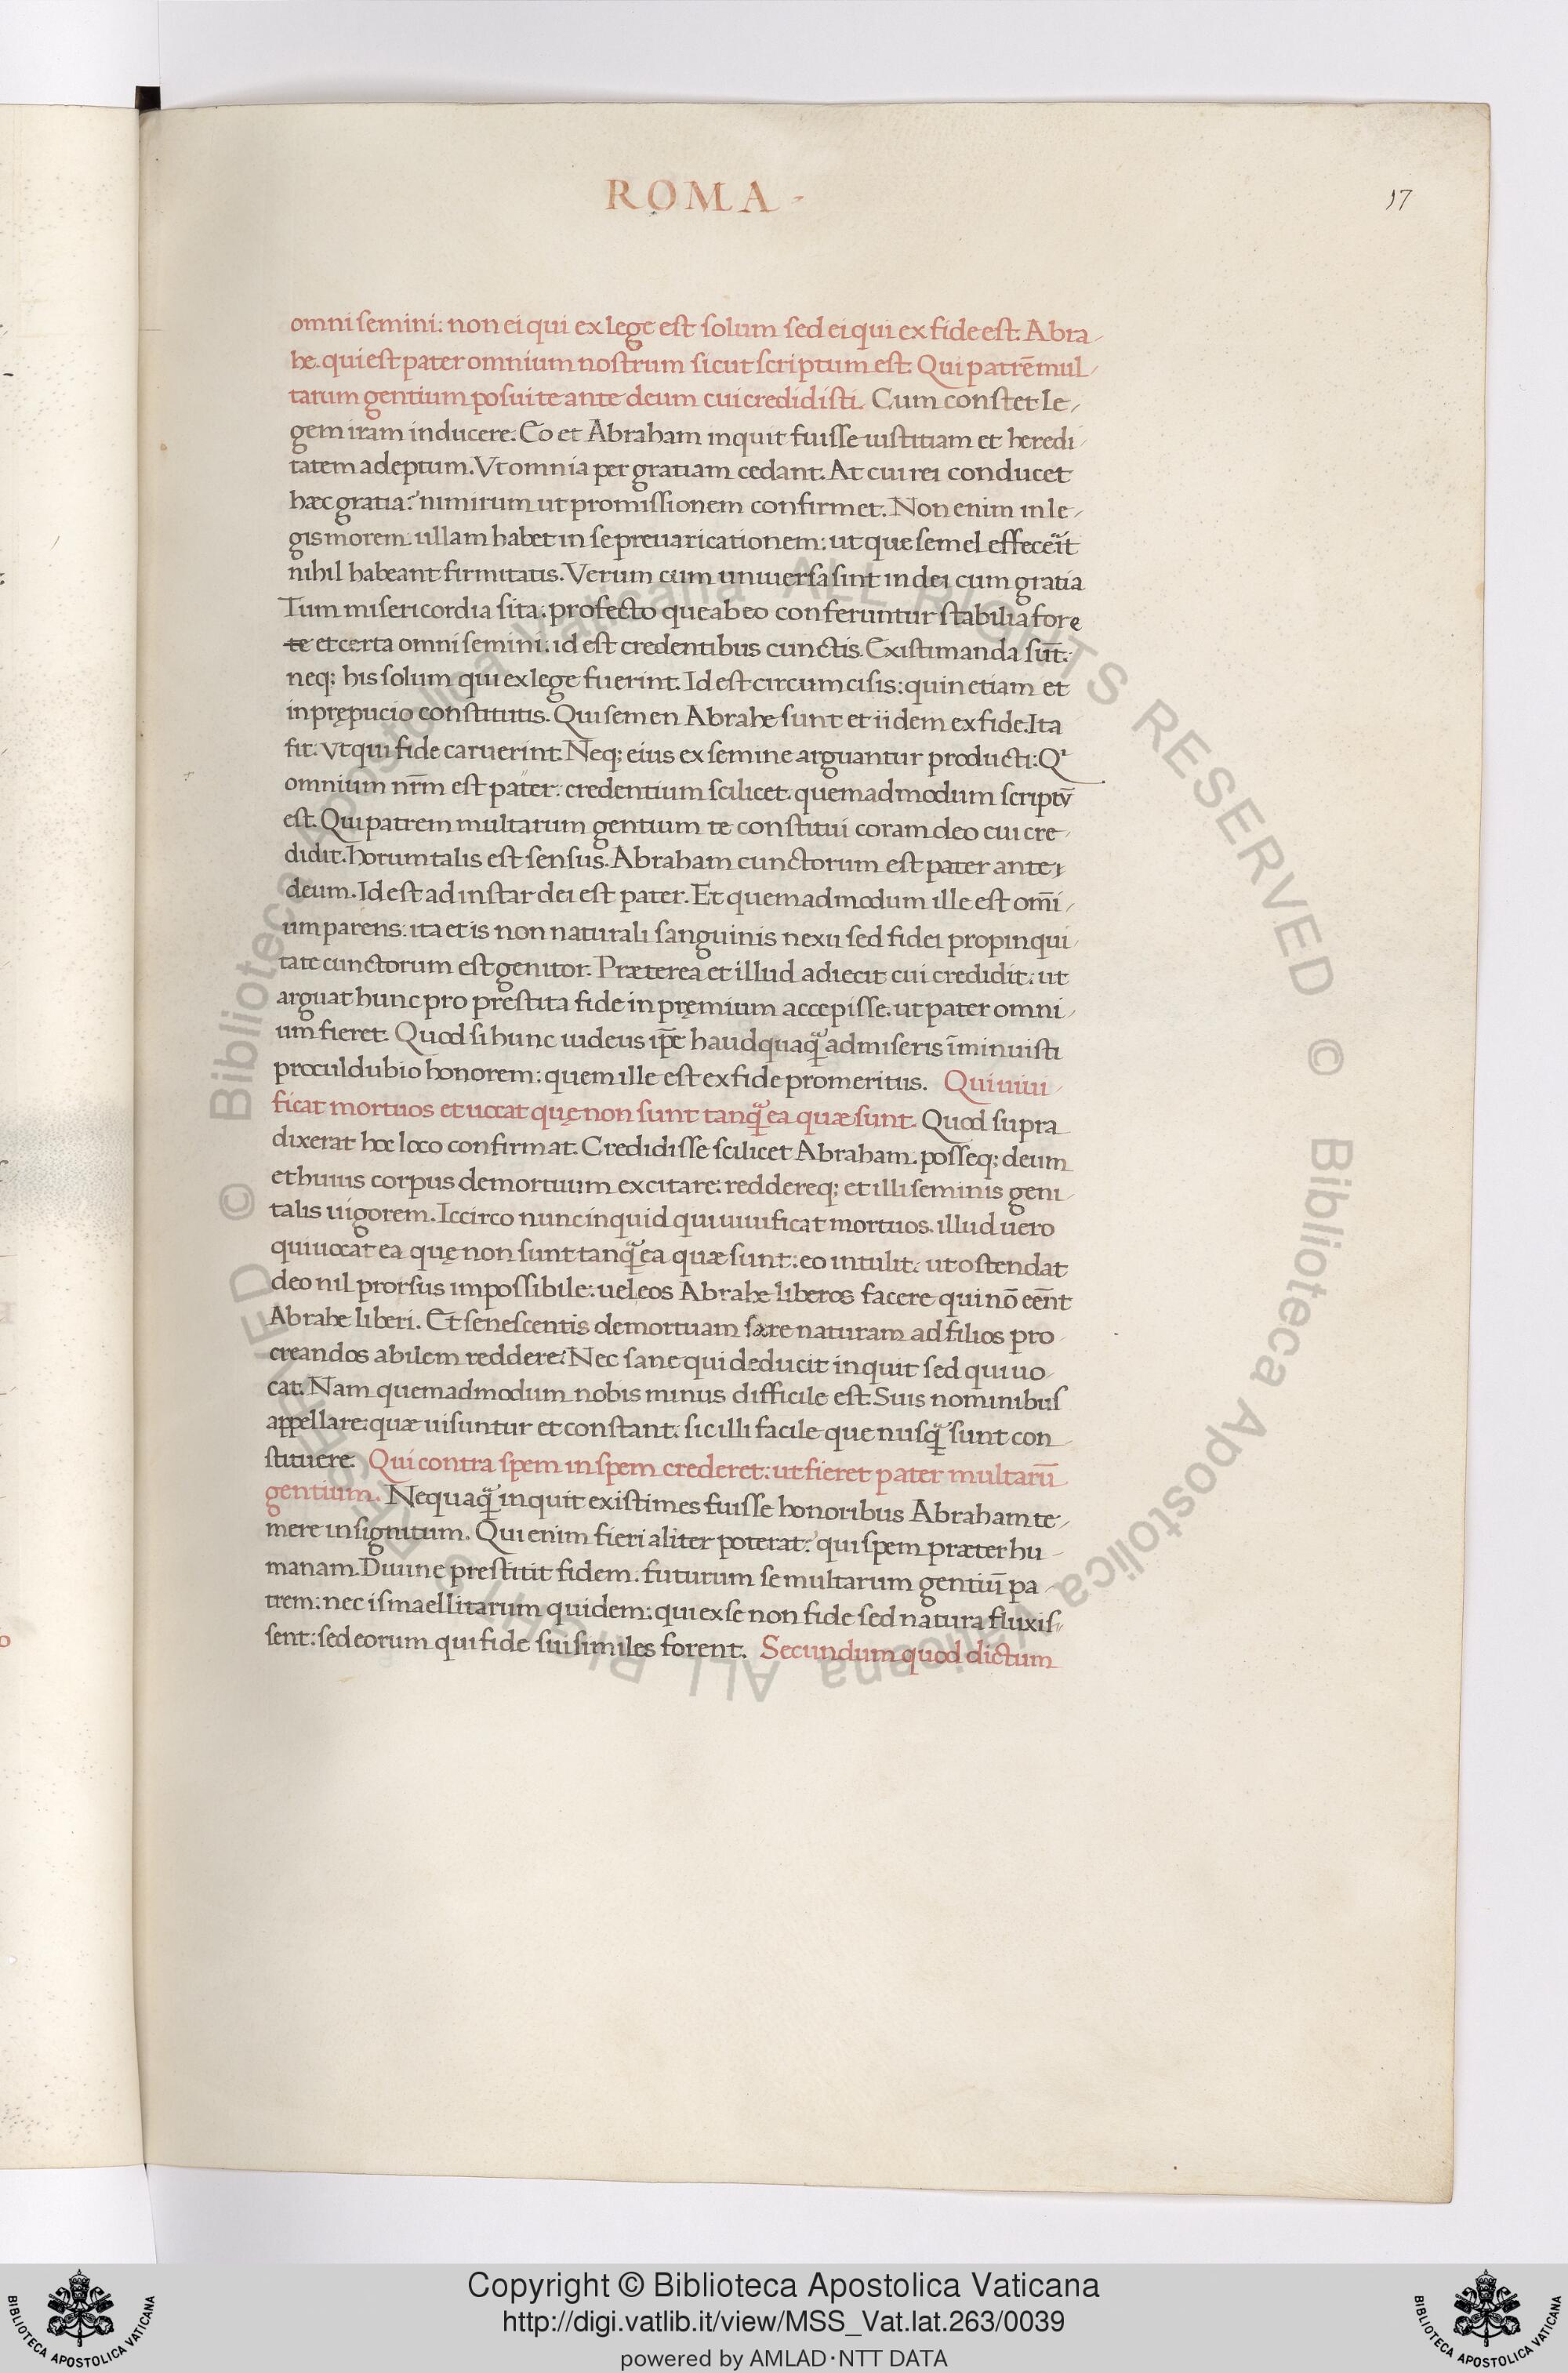 ROMA
17
omni semini: non ei qui ex lege est solum sed ei qui ex fide est. Abra-
he. qui est pater omnium nostrum sicut scriptum est. Qui patrē mul-
tarum gentium posui te ante deum cui credidisti. Cum constet le-
gem iram inducere. Eo et Abraham inquit fuisse iustitiam et heredi-
tatem adeptum. Vt omnia per gratiam cedant. At cui rei conducet
hæc gratia? nimirum ut promissionem confirmet. Non enim in le-
gis morem. ullam habet in se preuaricationem: ut que semel effeceit
nihil habeant firmitatis. Verum cum uniuersa sint in dei cum gratia
Tum misericordia sita: profecto que ab eo conferuntur stabilia fore
te et certa omni semini: id est credentibus cunctis. Existimanda sūt.
neq; his solum qui ex lege fuerint. Id est circumcisis: quin etiam et
in prępucio constitutis. Qui semen Abrahe sunt et iidem ex fide. Ita
fit. vt qui fide caruerint. Neq; eius ex semine arguantur producti: Qr
omnium nr̄m est pater: credentium scilicet. quemadmodum scriptv̄
est. Qui patrem multarum gentium te constitui coram deo cui cre-
didit. horum talis est sensus. Abraham cunctorum est pater ante
deum. Id est ad instar dei est pater. Et quemadmodum ille est om̄i-
um parens. ita et is non naturali sanguinis nexu sed fidei propinqui-
tate cunctorum est genitor. Præterea et illud adiecit cui credidit. ut
arguat hunc pro prestita fide in pręmium accepisse. ut pater omni-
um fieret. Quod si hunc iudeus ip̄e haudquaq̃ admiseris īminuisti
proculdubio honorem: quem ille est ex fide promeritus. Qui uiui-
ficat mortuos et uocat quę non sunt tanq̃ ea quæ sunt. Quod supra
dixerat hoc loco confirmat. Credidisse scilicet Abraham. posseq; deum
et huius corpus demortuum excitare: reddereq; et illi seminis geni-
talis uigorem. Iccirco nunc inquid qui uiuificat mortuos. illud uero
qui uocat ea quę non sunt tanq̃ ea quæ sunt: eo intulit. ut ostendat
deo nil prorsus impossibile: uel eos Abrahe liberos facere qui nō eēnt
Abrahe liberi. Et senescentis demortuam sare naturam ad filios pro-
creandos abilem reddere. Nec sane qui deducit inquit sed qui uo-
cat. Nam quemadmodum nobis minus difficile est. Suis nominibus
appellare: quæ uisuntur et constant: sic illi facile que nusq̃ sunt con-
stituere. Qui contra spem in spem crederet: ut fieret pater multarū
gentium. Nequaq̃ inquit existimes fuisse honoribus Abraham te-
mere insignitum. Qui enim fieri aliter poterat? qui spem præter hu-
manam. Diuine prestitit fidem. futurum se multarum gentiū pa-
trem: nec ismaellitarum quidem: qui ex se non fide sed natura fluxis-
sent: sed eorum qui fide sui similes forent. Secundum quod dictum
© Biblioteca Apostolica Vaticana ALL RIGHTS RESERVED © Biblioteca Apostolica Vaticana ALL RIGHTS RESERVED
Copyright © Biblioteca Apostolica Vaticana
http://digi.vatlib.it/view/MSS_Vat.lat.263/0039
powered by AMLAD·NTT DATA
BIBLIOTECA APOSTOLICA VATICANA
BIBLIOTECA APOSTOLICA VATICANA